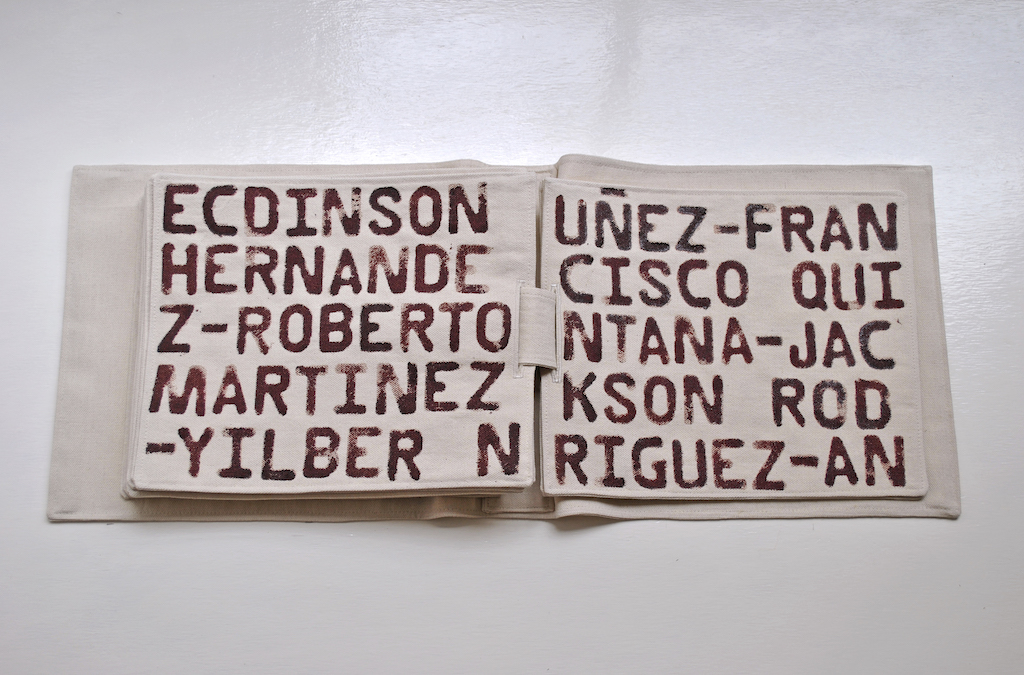 ECDINSON
HERNANDE
Z-ROBERTO
MARTINEZ
-YILBER N
UÑEZ-FRAN
CISCO QUI
NTANA-JAC
KSON ROD
RIGUEZ-AN